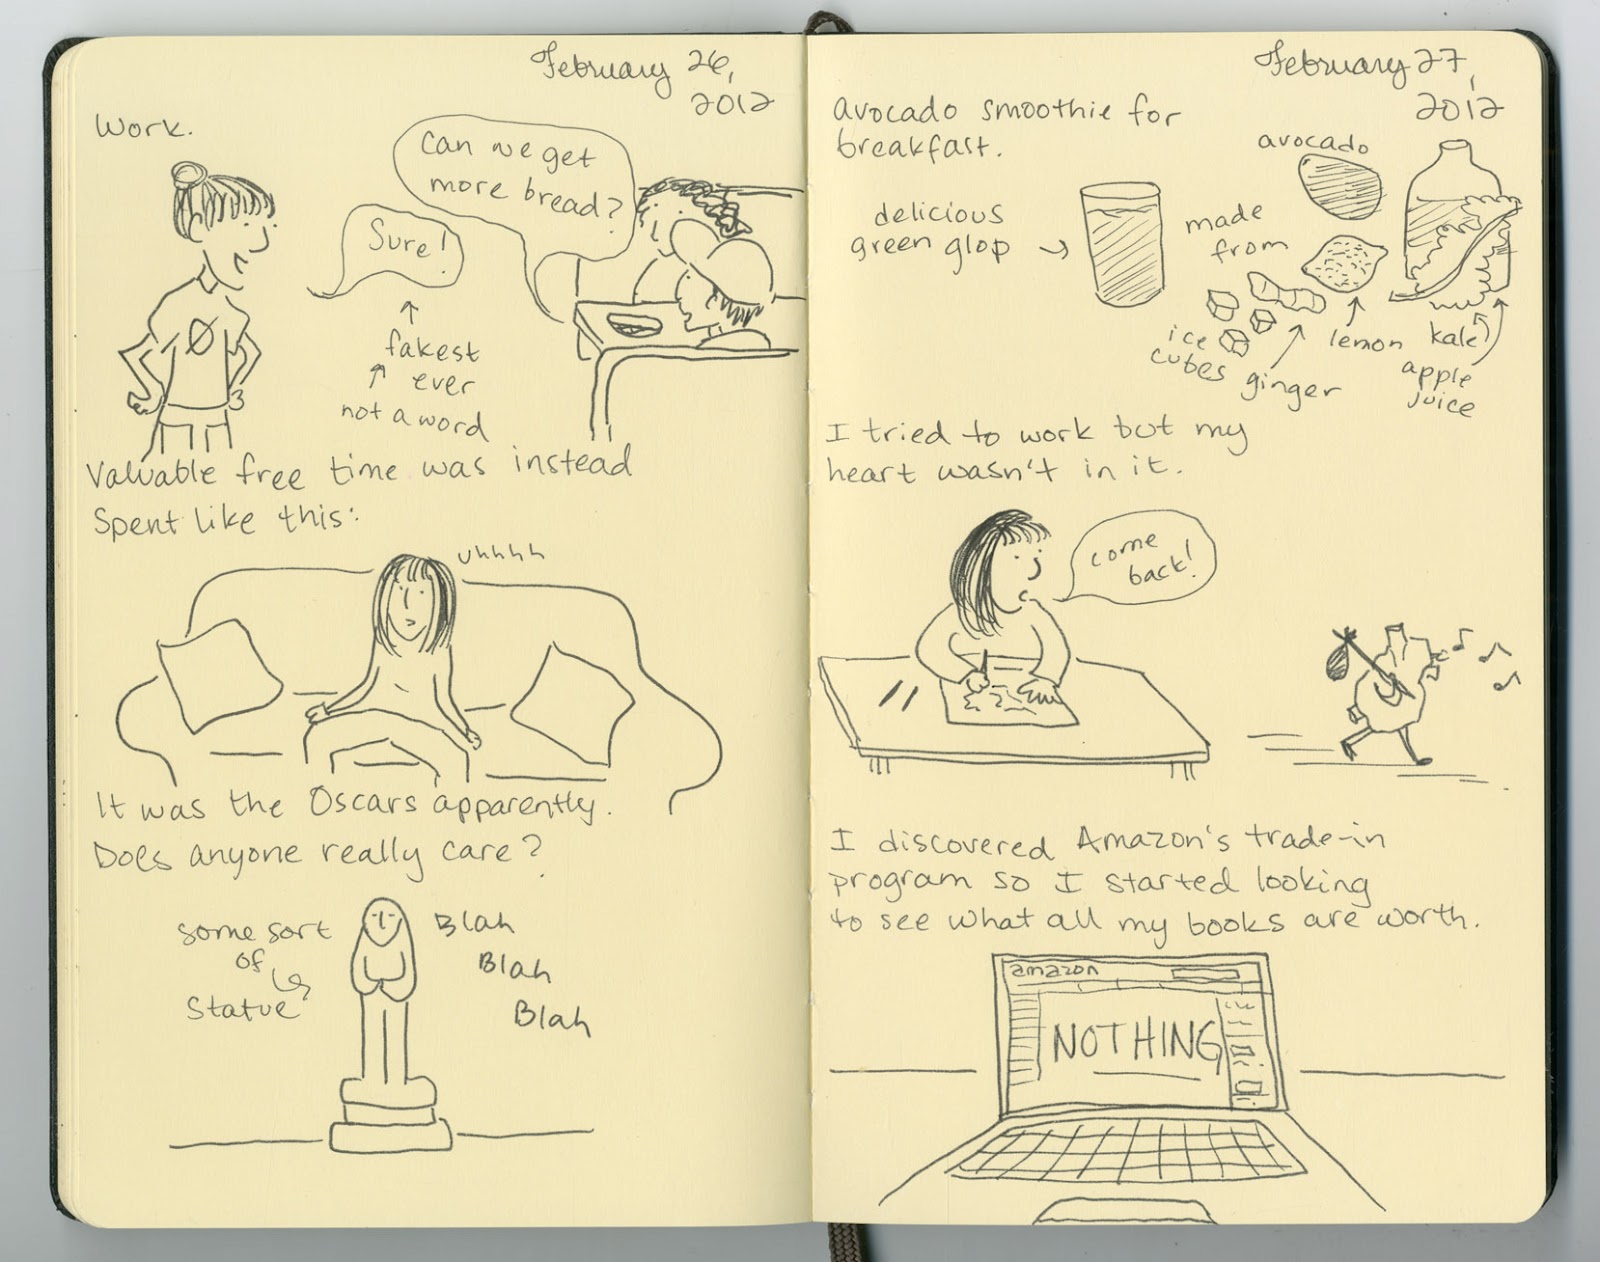 February 26,
2012
Work.
Can we get
more bread?
Sure!
fakest
ever
not a word
Valuable free time was instead
Spent like this:
uhhhh
It was the Oscars apparently.
Does anyone really care?
some sort
of
Statue
Blah
Blah
Blah
February 27,
2012
avocado smoothie for
breakfast.
delicious
green glop
made
from
avocado
ice
cubes
ginger
lemon
kale
apple
juice
I tried to work but my
heart wasn't in it.
come
back!
I discovered Amazon's trade-in
program so I started looking
to see what all my books are worth.
amazon
NOTHING